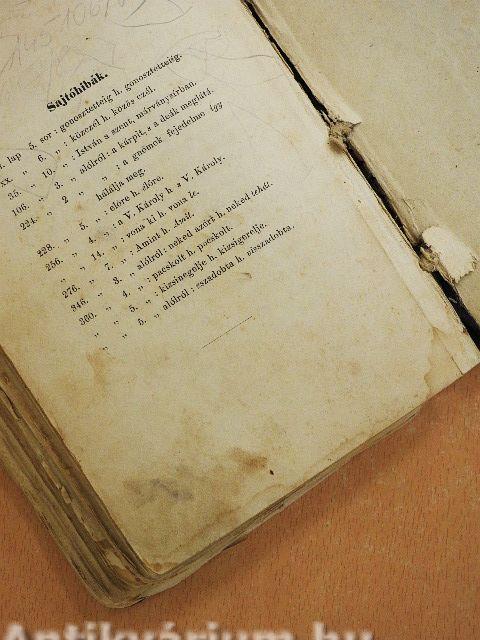 Sajtóhibák.
lap 5. sor : gonosztetteig h. gonosztettéig.
xx. „ 6. „ : közezél h. közös czél.
35. „ 10. „ : István a szent, márványsírban.
106. „ 3. „ alólról : a kárpit, s a deák meglátá.
224. „ 2 „ „ : a gnómok fejedelme így
hálálja meg.
228. „ 5. „ : előre h. előre.
256. „ 4. „ : a V. Károly h. a V. Károly.
„ „ 14. „ : vona ki h. vona le.
276. „ 7. „ : Amint h.
346. „ 3. „ alólról : neked azért h. neked tehát.
360. „ 4. „ : pacskolt h. pocskolt.
„ „ 5. „ : kizsinegelje h. kizsigerelje.
„ „ 5. „ alólról : eszadobta h. visszadobta.
Antikvárium.hu